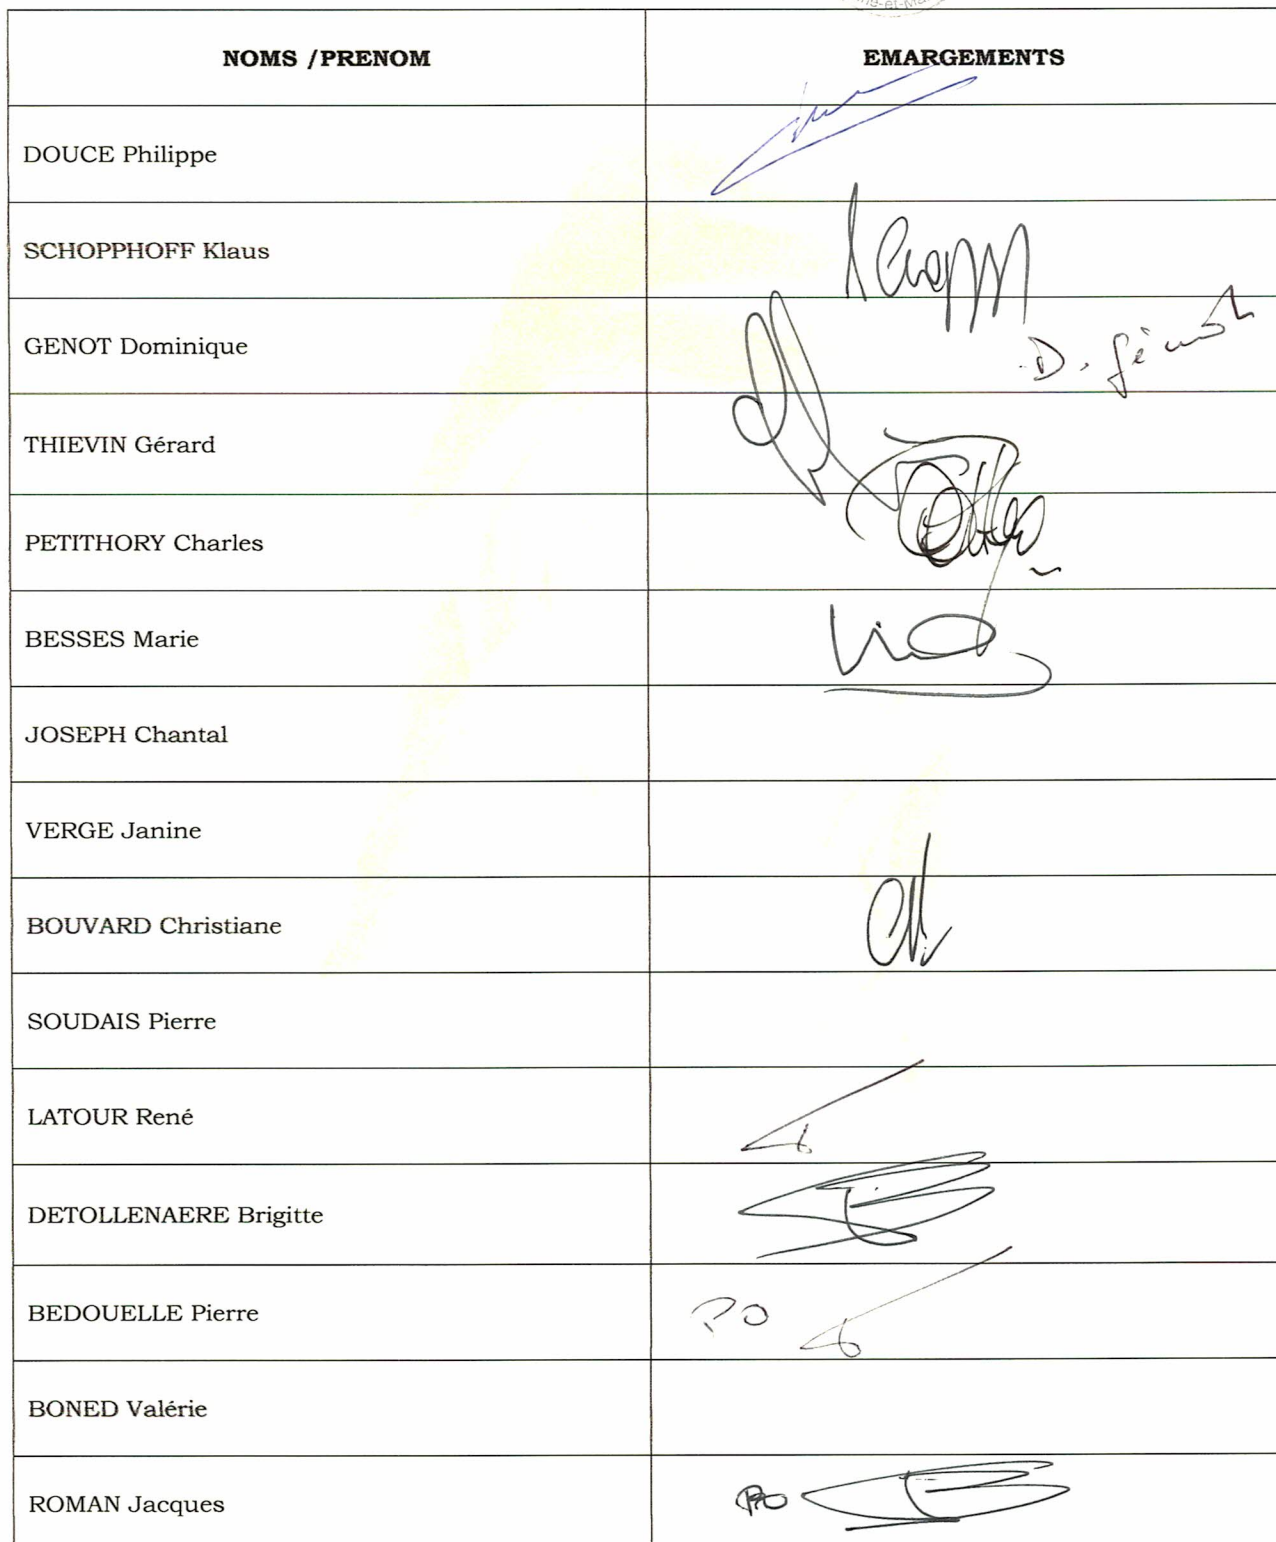 NOMS /PRENOM EMARGEMENTS
DOUCE Philippe
SCHOPPHOFF Klaus
GENOT Dominique D. Génot
THIEVIN Gérard
PETITHORY Charles
BESSES Marie
JOSEPH Chantal
VERGE Janine
BOUVARD Christiane
SOUDAIS Pierre
LATOUR René
DETOLLENAERE Brigitte
BEDOUELLE Pierre PO
BONED Valérie
ROMAN Jacques PO